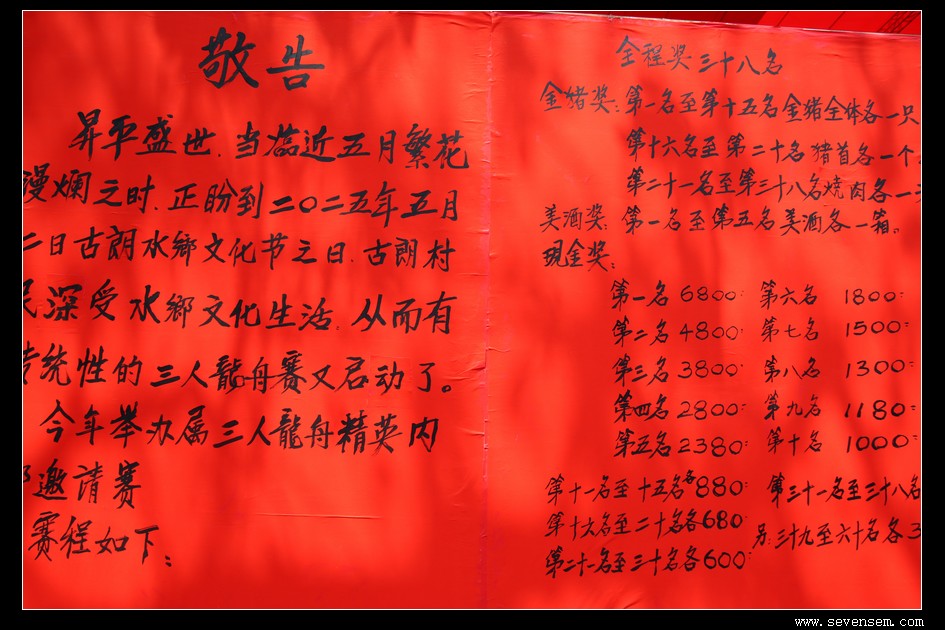 敬告
昇平盛世.当临近五月繁花
漫爛之时.正盼到二〇二五年五月
二日古朗水鄉文化节之日.古朗村
民深受水鄉文化生活.从而有
传统性的三人龍舟赛又启动了。
今年举办属三人龍舟精英内
邀请赛
赛程如下:
全程奖三十八名
金猪奖:第一名至第十五名金猪全体各一只
第十六名至第二十名猪首各一个
第二十一名至第三十八名烧肉各一
美酒奖:第一名至第五名美酒各一箱。
现金奖:
第一名 6800 第六名 1800
第二名 4800 第七名 1500
第三名 3800 第八名 1300
第四名 2800 第九名 1180
第五名 2380 第十名 1000
第十一名至十五名各880 第三十一名至三十八名
第十六名至二十名各680 另:三十九至六十名各3
第二十一名至三十名各600
www.sevensem.com